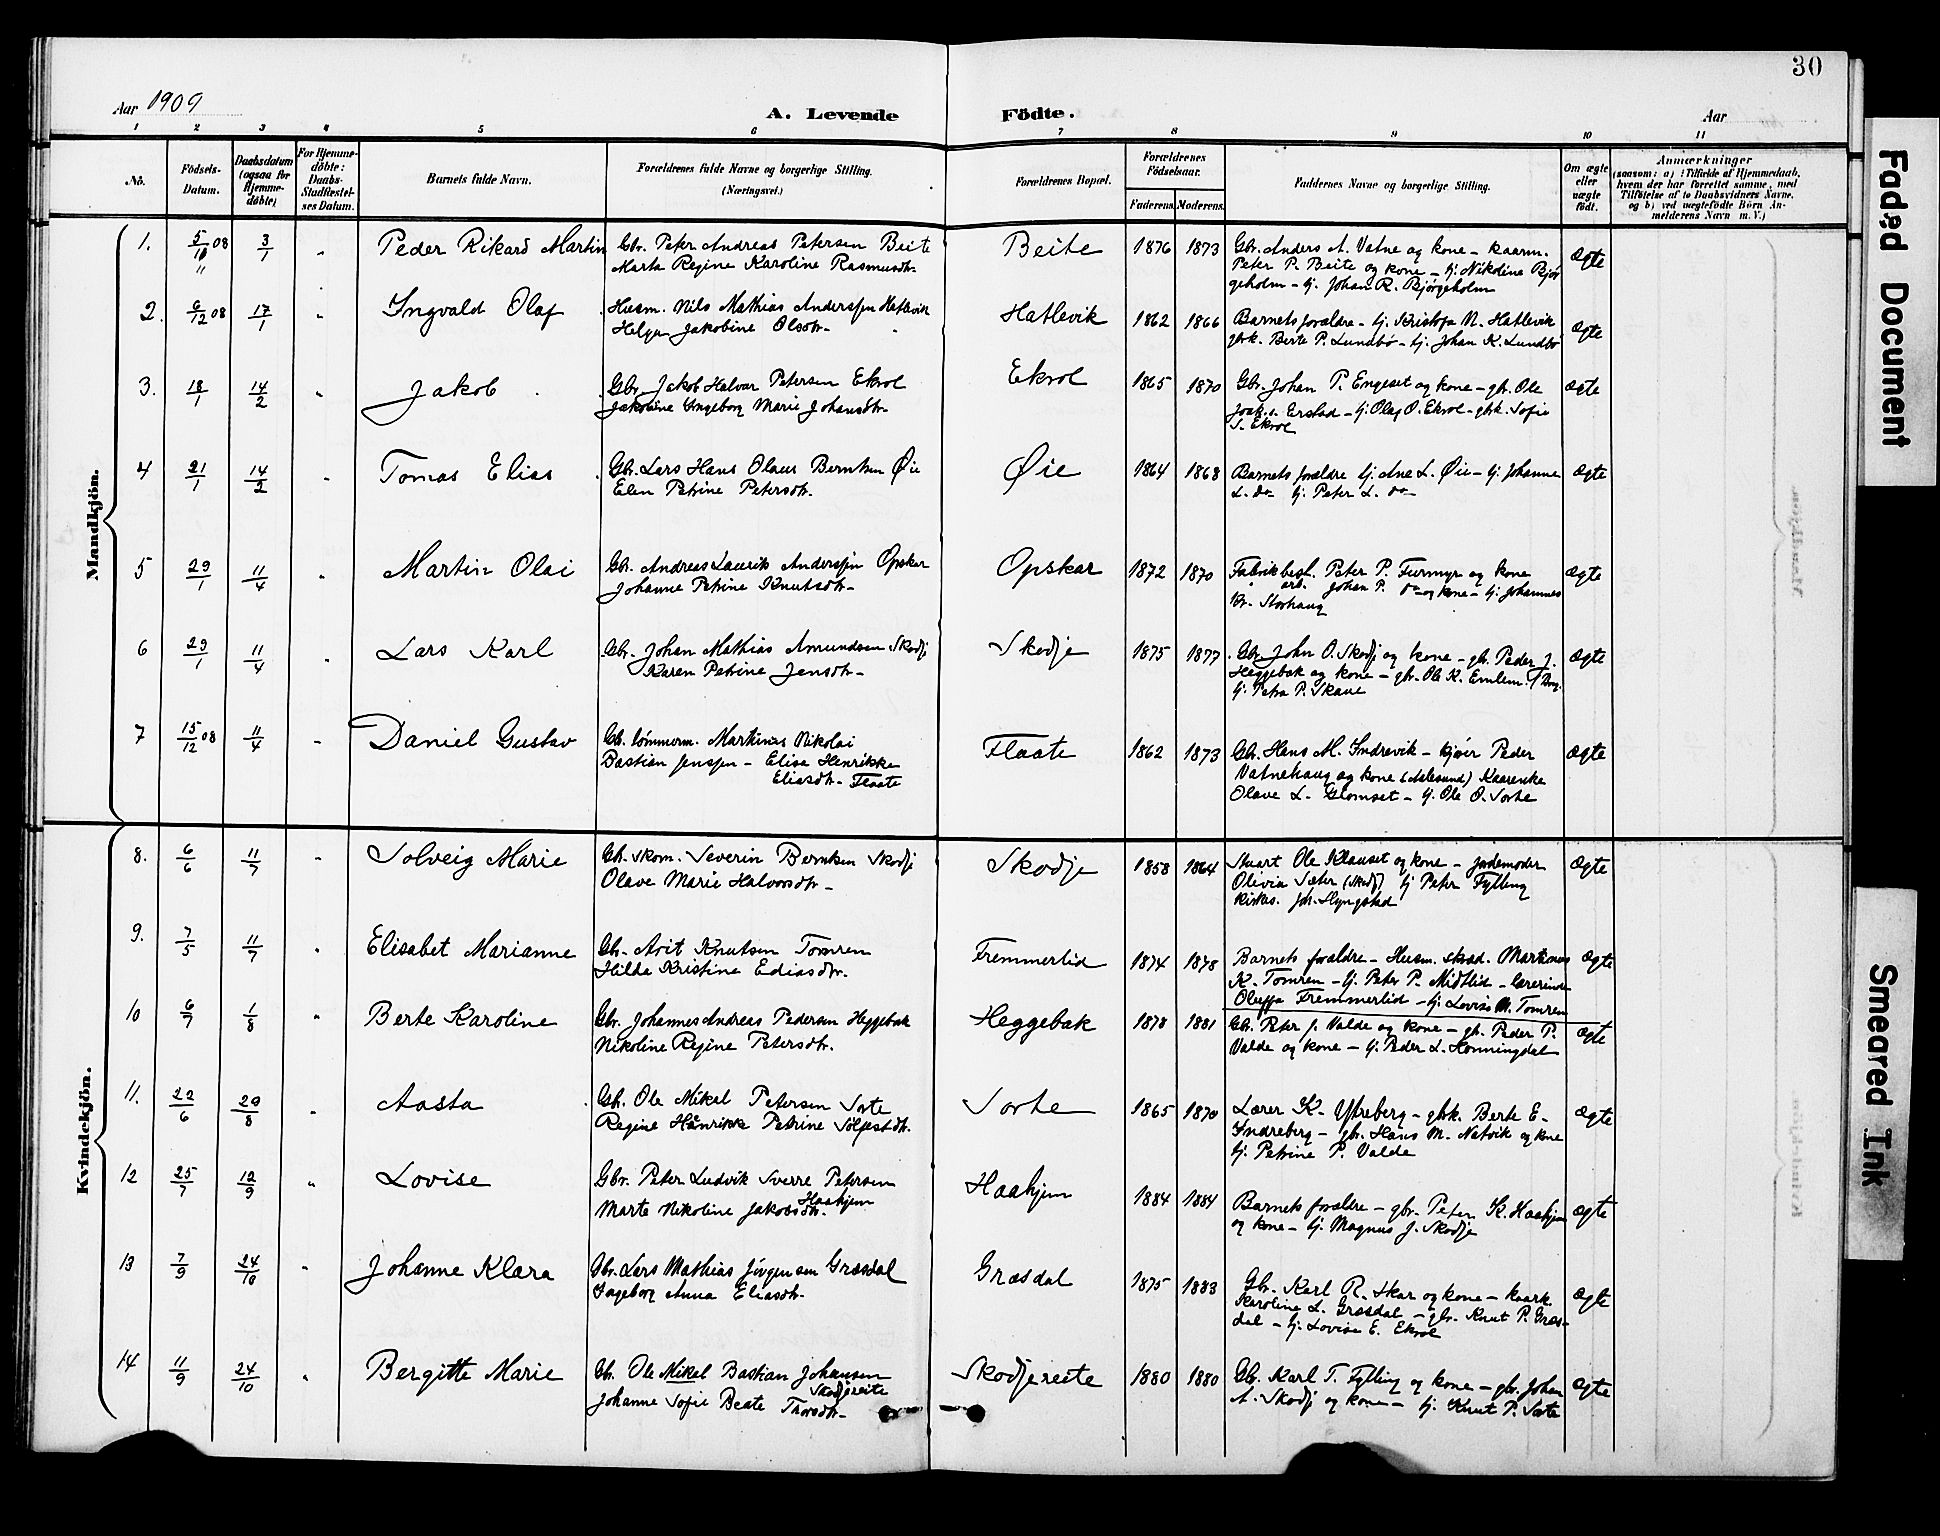 30
Aar 1909
A. Levende Födte.
Aar
1 2 3 4 5 6 7 8 9 10 11
No.
Födsels-Datum.
Daabsdatum (ogsaa for Hjemme-döbte)
For Hjemme-döbte: Daabs-Stadfæstel-ses Datum.
Barnets fulde Navn.
Forældrenes fulde Navne og borgerlige Stilling. (Næringsvei.)
Forældrenes Bopæl.
Forældrenes Födselsaar.
Faderens. Moderens.
Faddernes Navne og borgerlige Stilling.
Om ægte eller uægte födt.
Anmærkninger
(saasom: a) i Tilfælde af Hjemmedaab, hvem der har forrettet samme, med Tilföielse af to Daabsvidners Navne, og b) ved uægtefödte Börn An-melderens Navn m. V.)
Mandkjön.
1. 5/10 08 3/1 " Peder Rikard Martin Gbr. Peter Andreas Petersen Beite Beite 1876 1873 Gbr. Anders A. Vatne og kone - kaarm. Ægte
Marta Regine Karoline Rasmusdtr. Peter P. Beite og kone - tj. Nikoline Bjør
geholm - tj. Johan R. Bjørgeholm
2. 6/12 08 17/1 " Ingvald Olaf Husm. Nils Mathias Anderssen Hatlevik Hatlevik 1862 1866 Barnets forældre - tj. Kristofa N. Hatlevik Ægte
Helga Jakobine Olsdtr. gbrk. Berte P. Lundbø - tj. Johan K. Lundbø
3. 18/1 14/2 " Jakob Gbr. Jakob Halvar Petersen Ekrol Ekrol 1865 1870 Gbr. Johan P. Engeset og kone - gbr. Ole Ægte
Jakobine Ingeborg Marie Johansdtr. Erstad - tj. Olag O. Ekrol - gbrk. Sofie
S. Ekrol
4 21/1 14/2 " Tomas Elias Gbr. Lars Hans Olaus Berntsen Øie Øie 1864 1868 Barnets forældre tj. Ane L. Øie - tj. Johanne Ægte
Elen Petrine Petersdtr. L. do tj. Peter L. do
5 29/1 11/4 " Martin Olai Gbr. Andreas Laurits Anderssen Opskar Opskar 1872 1870 Fabrikbest. Peter P. Furmyr og kone Ægte
Johanne Petrine Knutsdtr. arb. Johan P. do og kone - tj. Johannes
Kr. Storhaug
6 29/1 11/4 " Lars Karl Gbr. Johan Mathias Amundsen Skodje Skodje 1875 1877 Gbr. John O. Skodj og kone - gbr. Peder J. Ægte
Karen Petrine Jensdtr. Heggebak og kone - gbr. Ole K. Emlem.
tj. Petra P. Skaue
7 15/12 08 11/4 " Daniel Gustav Gbr. tømmerm. Martinus Nikolai Flaate 1862 1873 Gbr. Hans M. Indrevik - kjøir Peder Ægte
Bastian Jenssen - Elise Henrikke Vatnehaug og kone (Aalesund) Kaarenke
Eliasdtr. Flaate Olave L. Glomset - tj. Ole O. Sorte
Kvindekjön.
8. 6/6 11/7 " Solveig Marie Gbr. skom. Severin Berntsen Skodje Skodje 1858 1864 Stuart Ole Klauset og kone - jordemoder Ægte
Olave Marie Halvorsdtr. Olivia Sæter (Skodj) tj Peter Fylling
Kirkes. Joh. Flyngstad
9. 7/5 11/7 " Elisabet Marianne Gbr. Avit Knutsen Tomren Fremmerlid 1874 1878 Barnets forældre - Husm. skræd. Martinus Ægte
Hilda Kristine Ediasdtr. K. Tomren - tj. Peter P. Midtlid - lærerinde
Oluffa Fremmerlid - tj. Lovise M. Tomren
10 6/7 1/8 " Berte Karoline Gbr. Johannes Andreas Pedersen Heggebak Heggebak 1878 1881 Gbr. Peter J. Valde og kone - gbr. Peder P. Ægte
Nikoline Regine Petersdtr. Valde og kone - tj. Peder L. Honningdal
11. 22/6 29/8 " Aasta Gbr. Ole Mikal Petersen Sorte Sorte 1865 1870 Lærer K. Ytreberg - gbrk. Berte E. Ægte
Regine Henrikke Petrine Sølfestdtr. Indreberg - gbr. Hans M. Natvik og kone
tj. Petrine P. Valde
12 25/7 12/9 " Lovise Gbr. Peter Ludvik Sverre Petersen Haahjem 1884 1884 Barnets forældre - gbr. Peter K. Haahjem Ægte
Marte Nikoline Jakobsdtr. Haahjem og kone - tj. Magnus J. Skodje
13 7/9 24/10 " Johanne Klara Gbr. Lars Mathias Jørgensen Græsdal Græsdal 1875 1883 Gbr. Karl R. Skar og kone - kaark. Ægte
Ingeborg Anna Eliasdtr. Karoline L. Græsdal - gbr. Knut P. Græs-
dal - tj. Lovise E. Ekrol
14 11/9 24/10 " Bergitte Marie Gbr. Ole Mikal Bastian Johansen Skodjereite 1880 1880 Gbr. Karl T. Fylling og kone - gbr. Johan Ægte
Johanne Sofie Beate Thorsdtr. Skodjereite A. Skodj og kone - tj. Knut P. Sorte
Faded Document
Smeared Ink